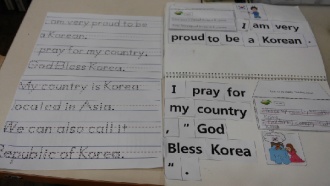 I am very proud to be
a Korean.
I pray for my country.
God Bless Korea.
My country is Korea
located in Asia.
We can also call it
Republic of Korea.
I am very
proud to be a Korean.
I pray for
my country
, " God
Bless Korea
".